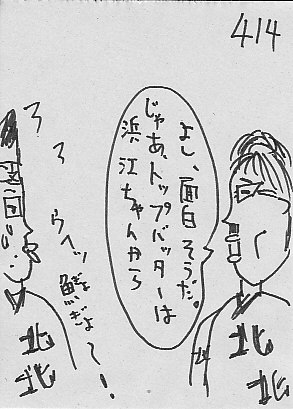 414
よし、面白そうだ。
じゃあ、トップバッターは
浜江ちゃんから
ウヘッ
北
北
北
北